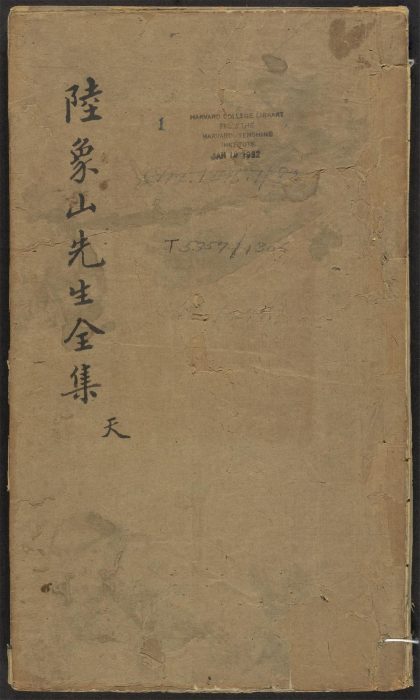 陸象山先生全集
天
1
HARVARD COLLEGE LIBRARY
FROM THE
HARVARD-YENCHING
INSTITUTE
JAN 19 1932